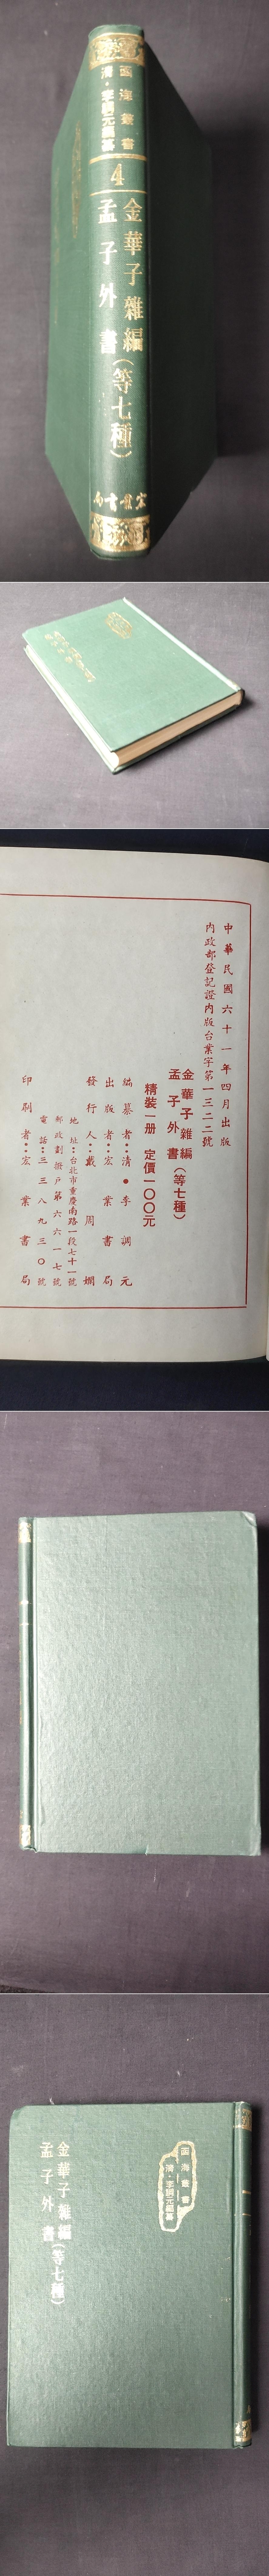 函海叢書
清·李調元編纂
4
金華子雜編
孟子外書
(等七種)
宏業書局
中華民國六十一年四月出版
內政部登記證內版台業字第一三二二號
金華子雜編
孟子外書
(等七種)
精裝一册 定價一〇〇元
編纂者:清•李調元
出版者:宏業書局
發行人:戴周嫻
地址:台北市重慶南路一段七十一號
郵政劃撥戶第六六一七號
電話:三三八九三〇號
印刷者:宏業書局
函海叢書
清·李調元編纂
金華子雜編
孟子外書
(等七種)